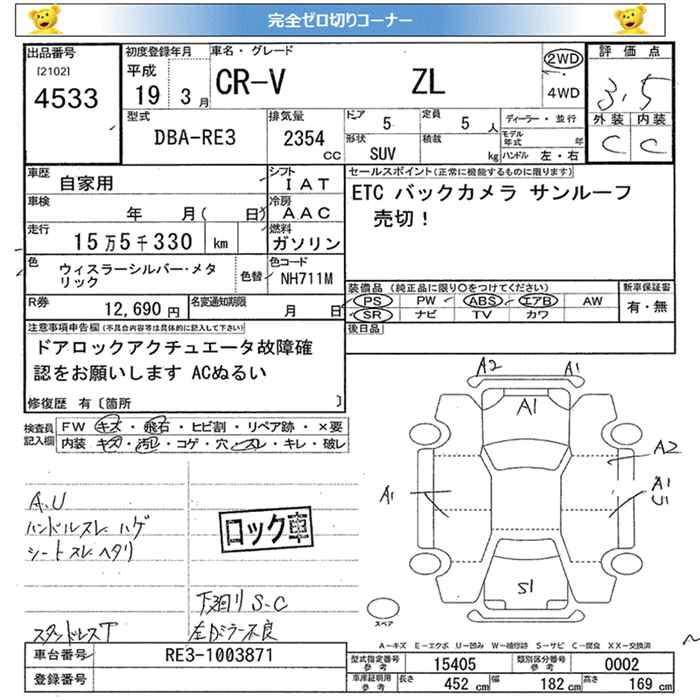 完全ゼロ切りコーナー
出品番号 初度登録年月 車名・グレード 評価点
[2102] 平成 CR-V ZL 2WD 3.5
4533 19 3月 4WD 外装 内装
型式 排気量 ドア 5 定員 5人 ディーラー・並行 C C
DBA-RE3 2354 cc 形状 SUV 積載 kg モデル年式 年
ハンドル 左・右
車歴 自家用 シフト IAT セールスポイント(正常に機能するものに限ります)
車検 年 月( 日) 冷房 AAC ETC バックカメラ サンルーフ
走行 15万5千330 km 燃料 ガソリン 売切!
色 ウィスラーシルバー・メタリック 色替 色コード NH711M
装備品(純正品に限り○をつけてください) 新車保証書
PS PW ABS エアB AW 有・無
R券 12,690円 名変通知期限 月 日 SR ナビ TV カワ
注意事項申告欄(不具合内容等は具体的に記入して下さい) 後日品
ドアロックアクチュエータ故障確
認をお願いします ACぬるい
修復歴 有〔箇所 〕
検査員記入欄 FW キズ・飛石・ヒビ割・リペア跡・×要
内装 キズ・汚れ・コゲ・穴・スレ・キレ・破レ
A2 A1
A1
A2
A1 A1
U1
A.U
ハンドルスレ ハゲ
シートスレ ヘタリ
ロック車
下廻り S.C
スタッドレスT 左ドラー不良
S1
スペア
A-キズ E-エクボ U-凹み W-補修跡 S-サビ C-腐食 XX-交換済
車台番号 RE3-1003871 型式指定番号 参考 15405 類別区分番号 参考 0002
登録番号 車庫証明用 参考 長さ 452cm 幅 182cm 高さ 169cm